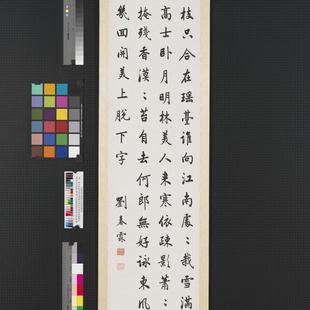 枝只合在瑶臺誰向江南處〻栽雪滿
高士卧月明林美人来寒依疎影蕭〻
掩殘香漠〻苔自去何郎無好詠東風
幾回開美上脫下字
劉春霖